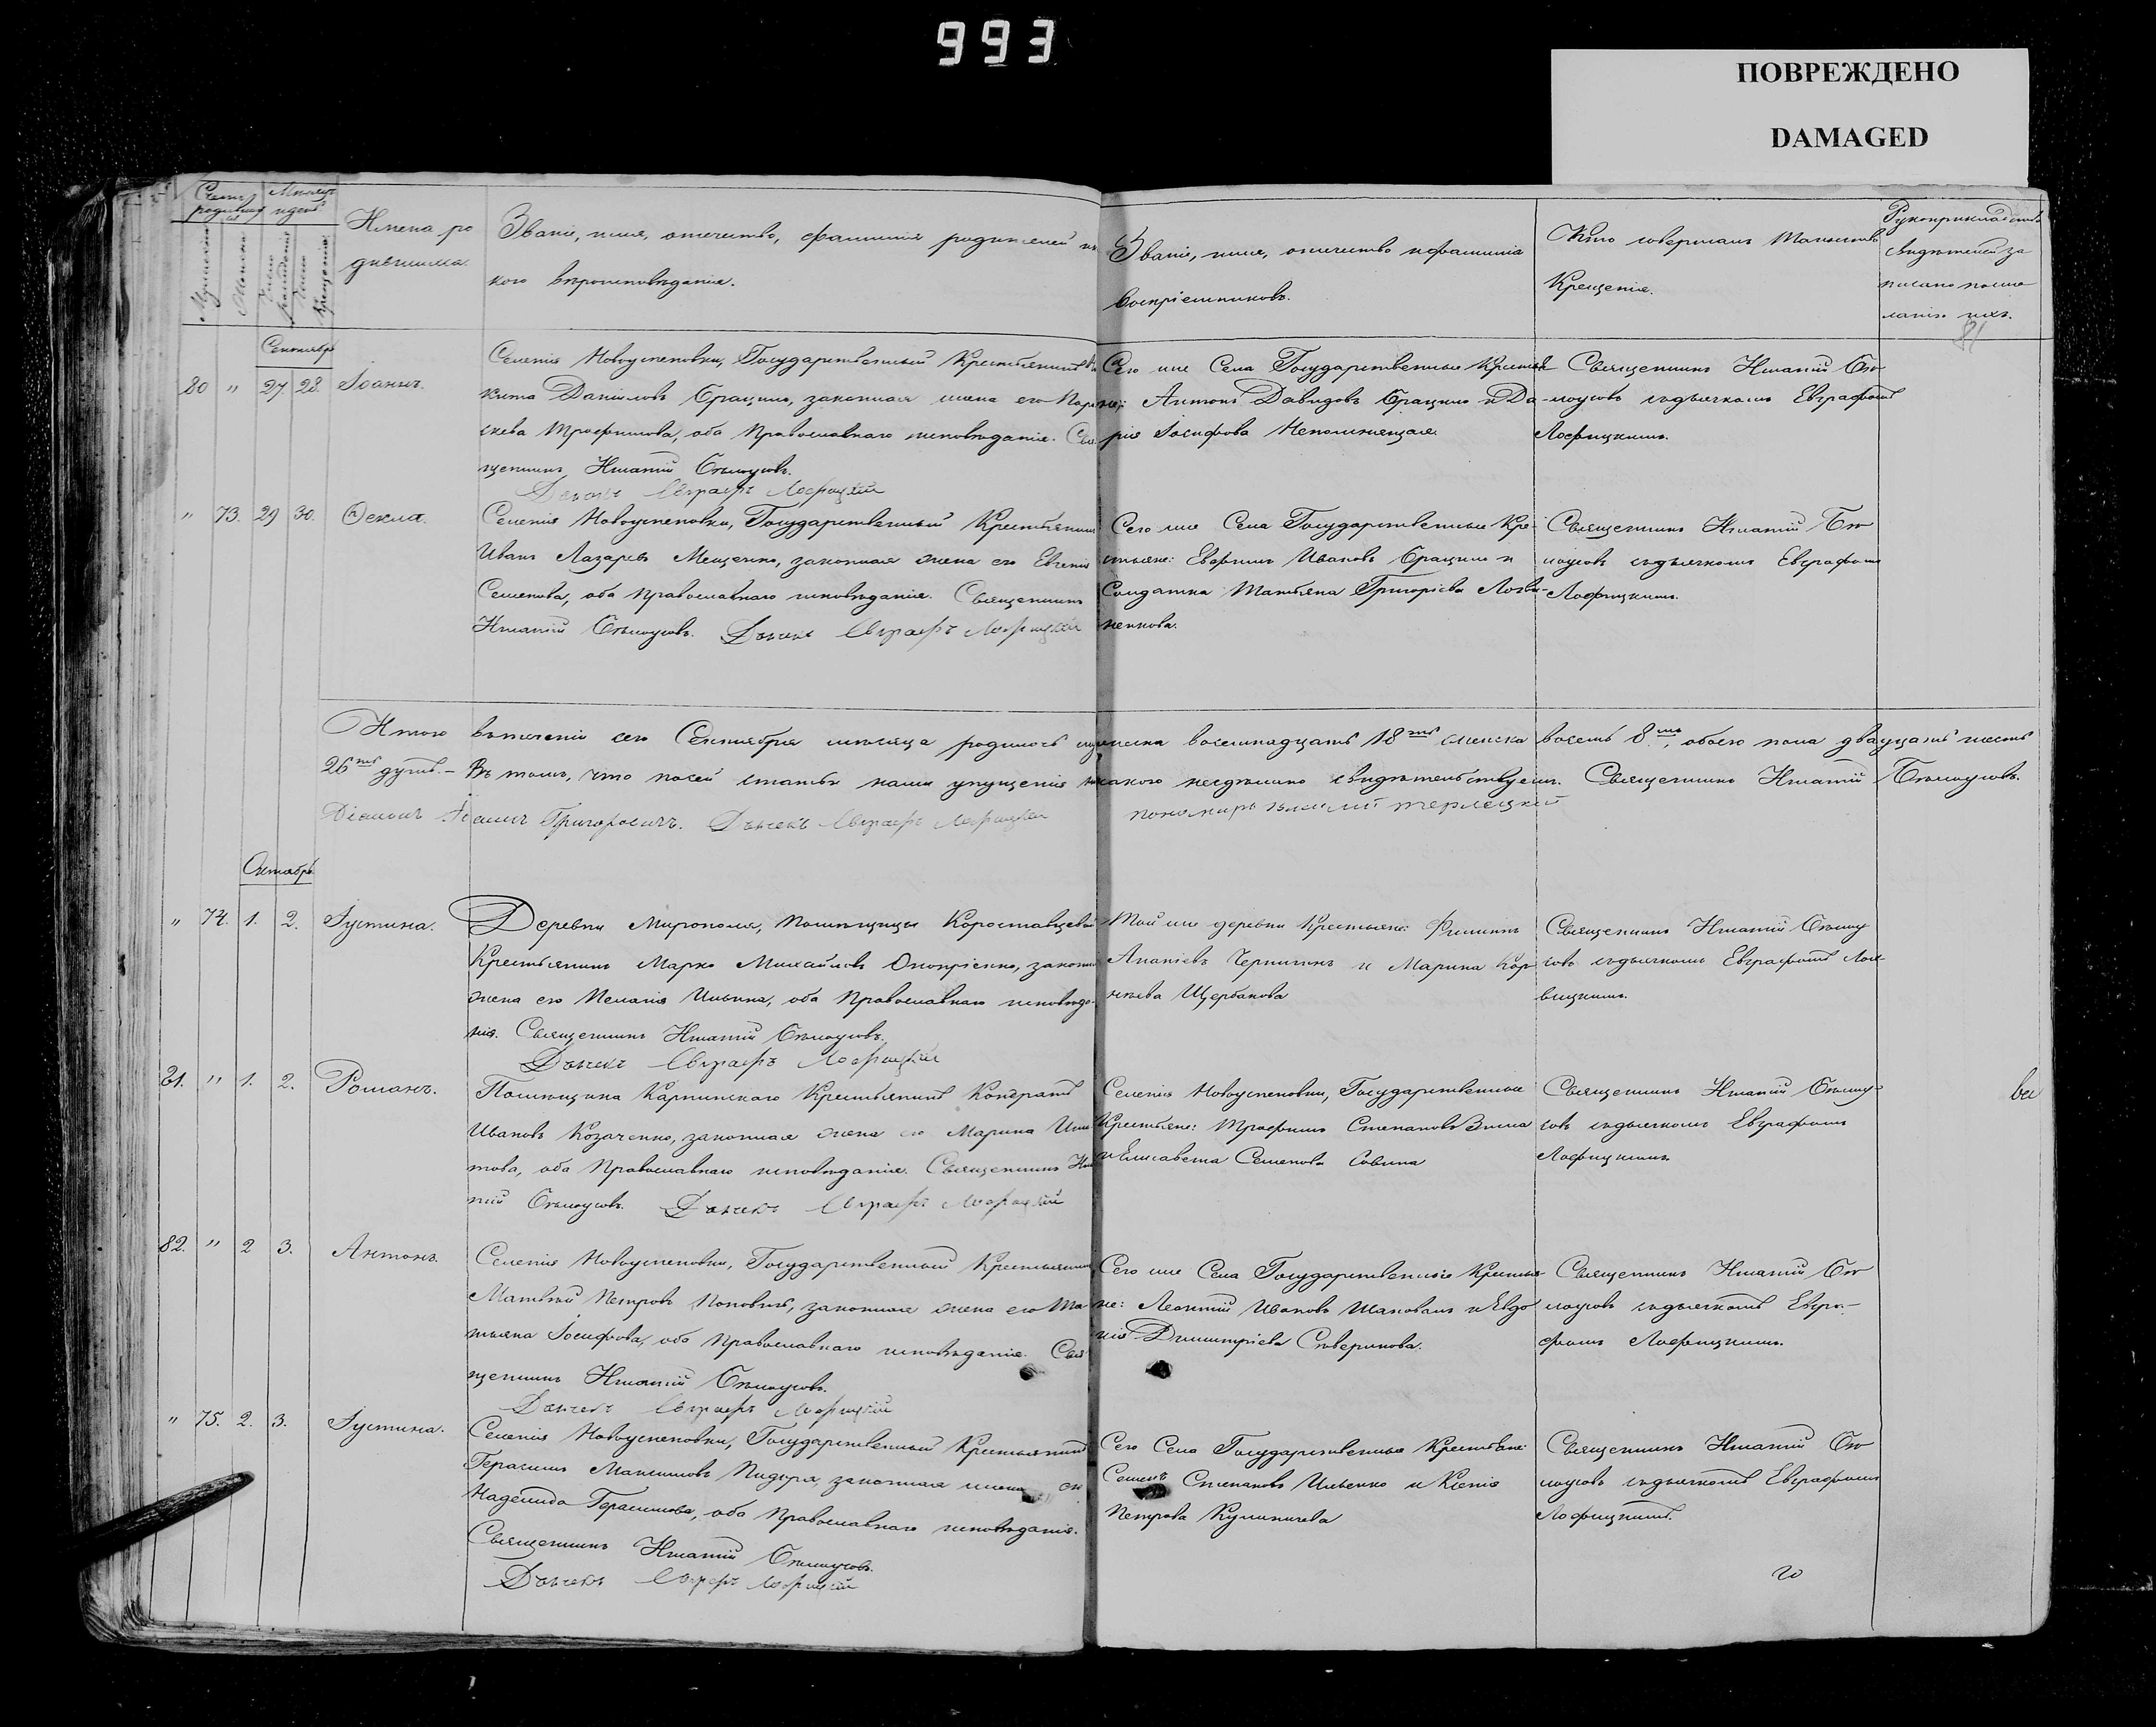 993
ПОВРЕЖДЕНО
DAMAGED
Счетъ родившихся
Мѣсяцъ и день
Мужеска
Женска
Число рожденія
Число крещенія
Имена ро
дившимъ.
Званіе, имя, отечество, фамилія родителей и ка
кого вѣроисповѣданія.
Званіе, имя, отечество и фамилія
воспріемниковъ.
Кто совершалъ таинство
Крещенія.
Рукоприкладство
свидѣтелей за
писано поже
ланію ихъ.
81
Сентябрь
80 " 27. 28. Іоаннъ.
Селенія Новоуспеновки, Государственный Крестьянинъ Ни
кита Даніиловъ Брацило, законная жена его Пара
скева Трофимова, оба Православнаго исповѣданія. Свя
щенникъ Игнатій Бѣлоусовъ.
Дьячекъ Евграфъ Лофицкій
Сего же Села Государственные Крестья
не: Антонъ Давидовъ Брацило и Да
рія Іосифова Непомнящая.
Священникъ Игнатій Бѣ
лоусовъ съдьячкомъ Евграфомъ
Лофицкимъ.
" 73. 29 30. Ѳекла.
Селенія Новоуспеновки, Государственный Крестьянинъ
Иванъ Лазаревъ Мещенко, законная жена его Евгенія
Семенова, оба Православнаго исповѣданія. Священникъ
Игнатій Бѣлоусовъ. Дьячекъ Евграфъ Лофицкій
Сего же Села Государственные Кре
стьяне: Евфимъ Ивановъ Брацило и
Солдатка Татьяна Григоріева Логви
ненкова.
Священникъ Игнатій Бѣ
лоусовъ съдьячкомъ Евграфомъ
Лофицкимъ.
Итого втеченіи сего Сентября мѣсяца родилось мужеска восемнадцать 18ть женска восемь 8мь, обоего пола двадцать шесть
26ть душъ. – Въ томъ, что посей статьѣ нами упущенія никакого несдѣлано свидѣтельствуемъ. Священникъ Игнатій Бѣлоусовъ.
Діаконъ Іоаннъ Григоровичъ. Дьячекъ Евграфъ Лофицкій
пономарь Терлецкій
Октябрь
" 74. 1. 2. Іустина.
Деревни Мирополя, Помѣщицы Коростовцевой
Крестьянинъ Марко Михайловъ Онопріенко, законная
жена его Пелагія Ильина, оба Православнаго исповѣда
нія. Священникъ Игнатій Бѣлоусовъ.
Дьячекъ Евграфъ Лофицкій
Той же деревни Крестьяне: Филиппъ
Ананіевъ Чернигинъ и Марина Кор
нѣева Щербакова
Священникъ Игнатій Бѣлоу
совъ съдьячкомъ Евграфомъ Лоф
ицкимъ.
81. " 1. 2. Романъ.
Помѣщика Карпинскаго Крестьянинъ Кондратъ
Ивановъ Козаченко, законная жена его Марина Игна
това, оба Православнаго исповѣданія. Священникъ Игна
тій Бѣлоусовъ. Дьячекъ Евграфъ Лофицкій
Селенія Новоуспеновки, Государственные
Крестьяне: Трофимъ Степановъ Зима
и Елисавета Семенова Савина
Священникъ Игнатій Бѣлоу
совъ съдьячкомъ Евграфомъ
Лофицкимъ
82. " 2 3. Антонъ.
Селенія Новоуспеновки, Государственный Крестьянинъ
Матвѣй Петровъ Поповичъ, законная жена его Та
тьяна Іосифова, оба Православнаго исповѣданія. Свя
щенникъ Игнатій Бѣлоусовъ.
Дьячекъ Евграфъ Лофицкій
Сего же Села Государственные Крестья
не: Леонтій Ивановъ Шаповалъ и Евдо
кія Димитріева Северинова.
Священникъ Игнатій Бѣ
лоусовъ съдьячкомъ Евгра
фомъ Лофицкимъ.
" 75. 2. 3. Іустина.
Селенія Новоуспеновки, Государственный Крестьянинъ
Герасимъ Максимовъ Пидгора, законная жена его
Надежда Герасимова, оба Православнаго исповѣданія.
Священникъ Игнатій Бѣлоусовъ.
Дьячекъ Евграфъ Лофицкій
Сего Села Государственные Крестьяне:
Семенъ Степановъ Ильенко и Ксенія
Петрова Кулиничева
Священникъ Игнатій Бѣ
лоусовъ съдьячкомъ Евграфомъ
Лофицкимъ.